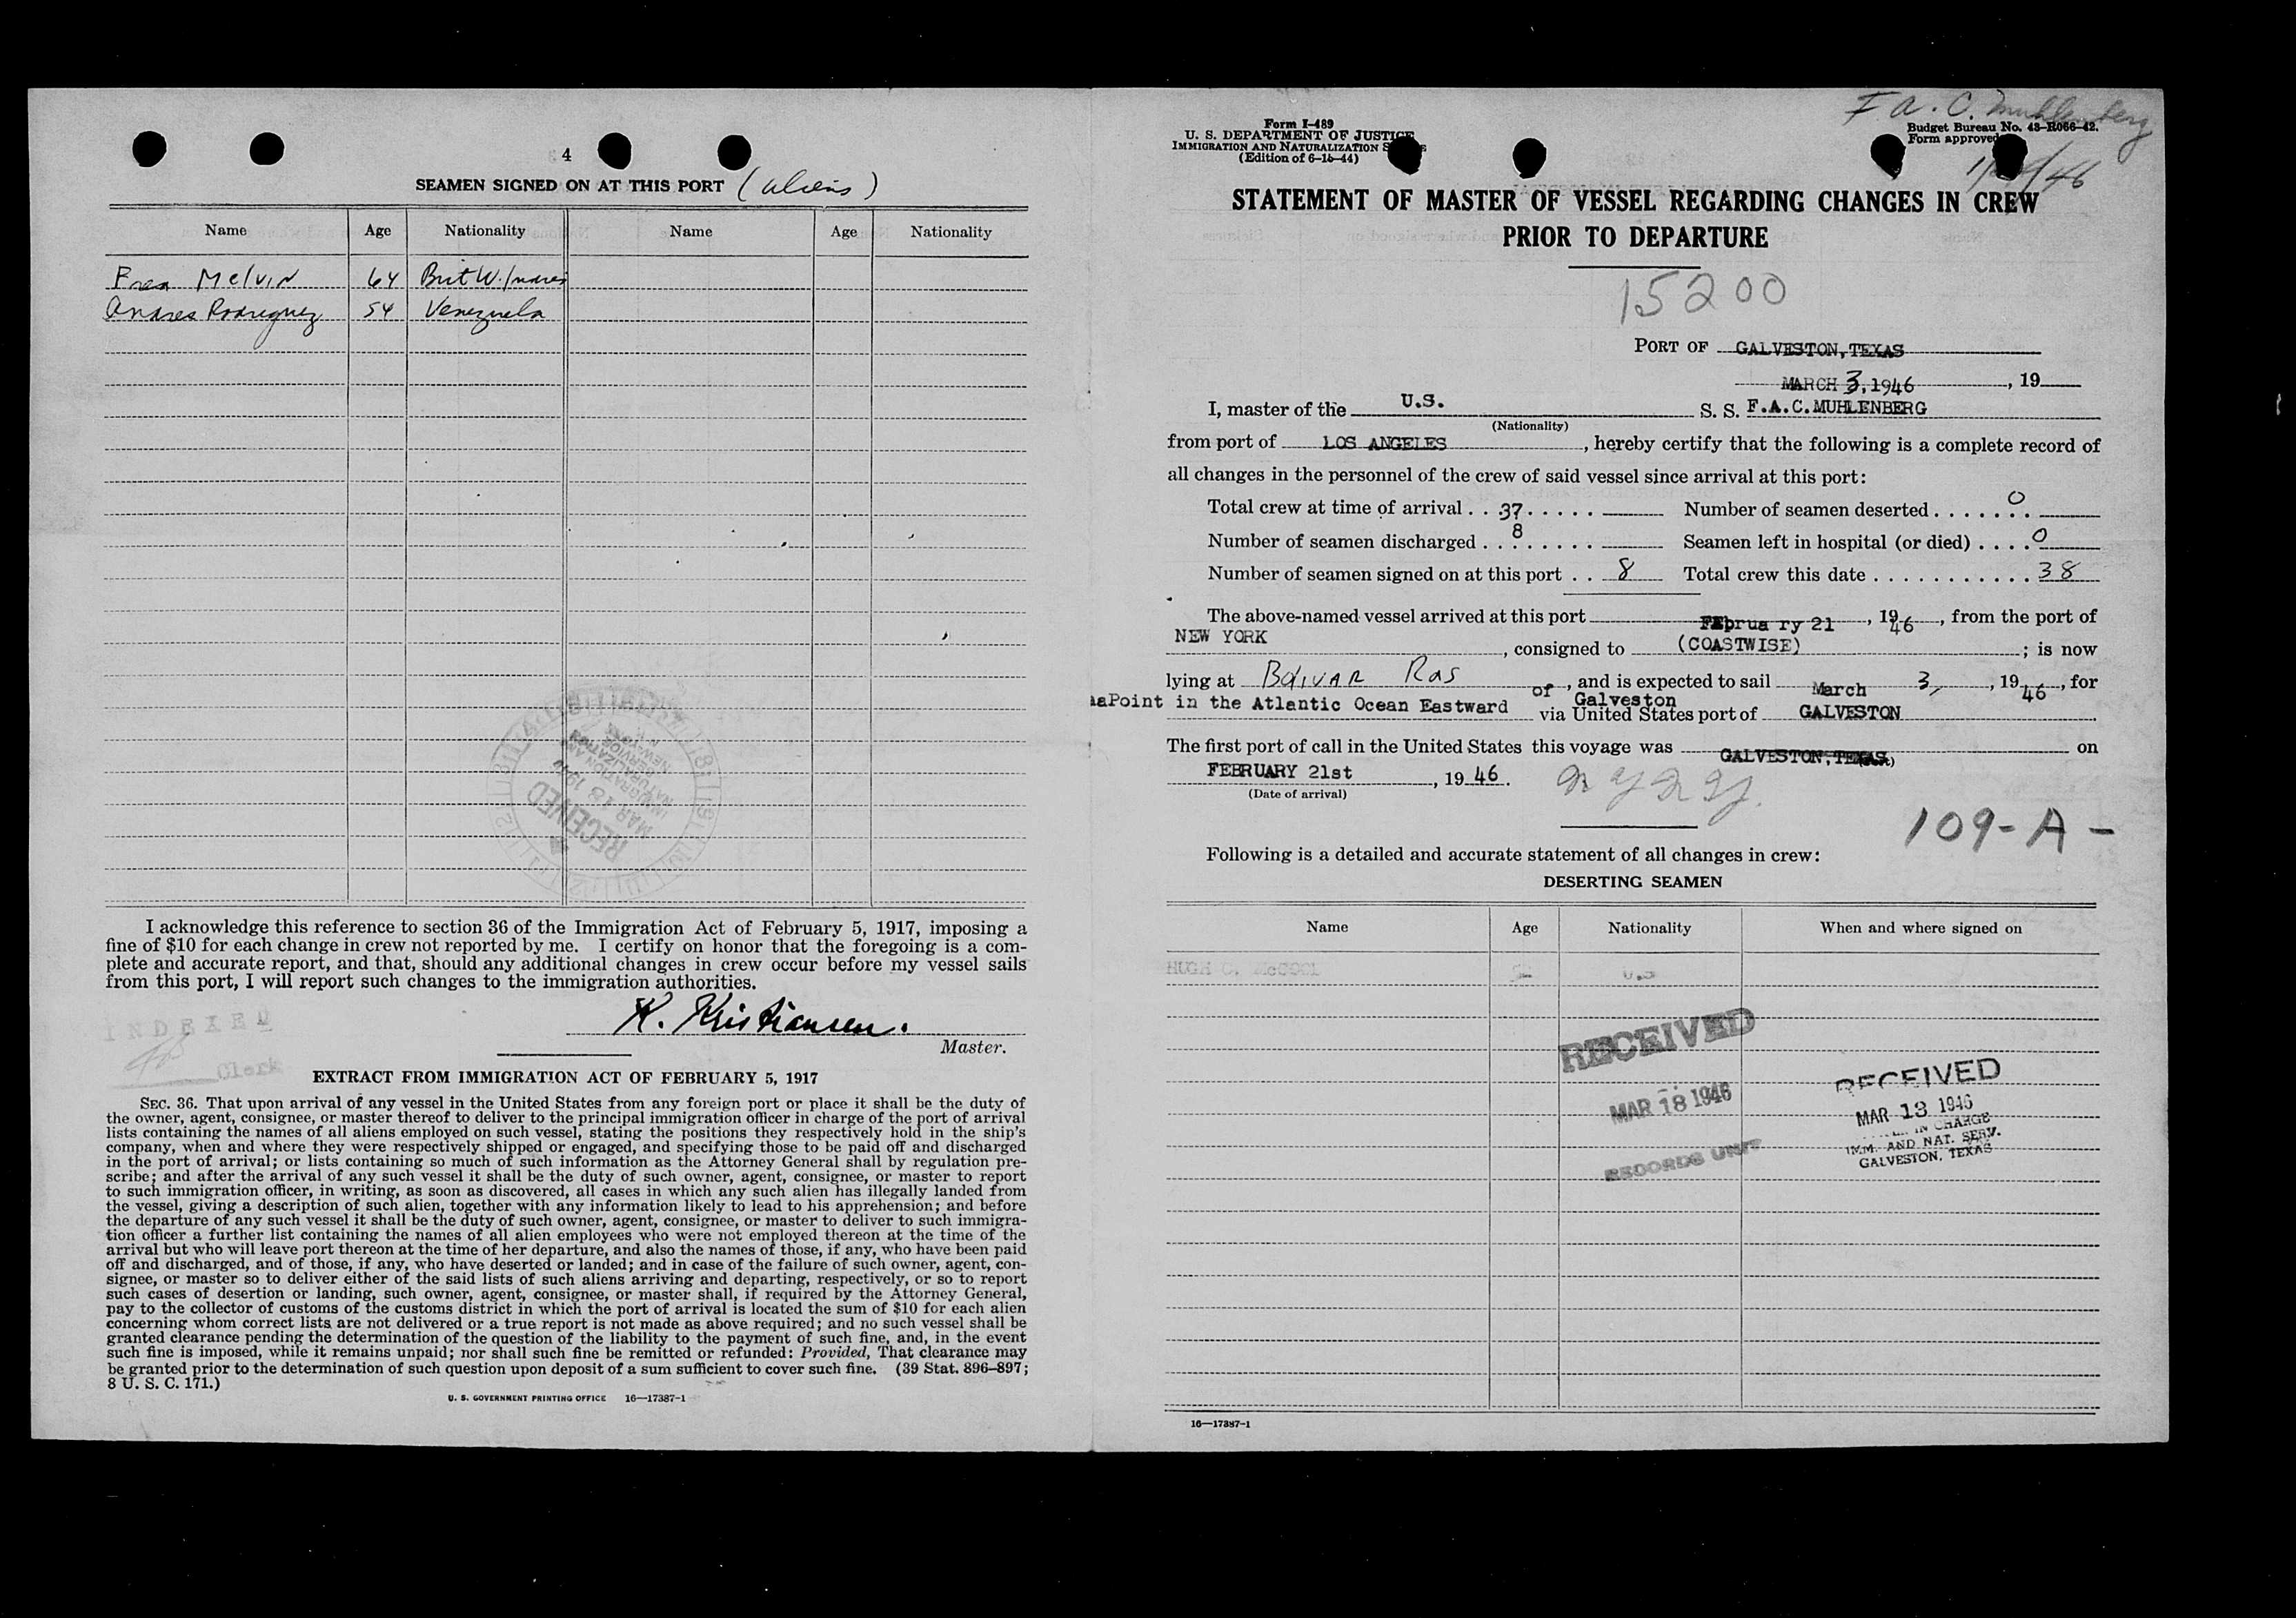 4
SEAMEN SIGNED ON AT THIS PORT (aliens)
Name Age Nationality Name Age Nationality
Melvin 64 Brit W. Indies
Andres Rodriguez 54 Venezuela
I acknowledge this reference to section 36 of the Immigration Act of February 5, 1917, imposing a
fine of $10 for each change in crew not reported by me. I certify on honor that the foregoing is a com-
plete and accurate report, and that, should any additional changes in crew occur before my vessel sails
from this port, I will report such changes to the immigration authorities.
K. Kristiansen.
Master.
INDEXED
Clerk
EXTRACT FROM IMMIGRATION ACT OF FEBRUARY 5, 1917
SEC. 36. That upon arrival of any vessel in the United States from any foreign port or place it shall be the duty of
the owner, agent, consignee, or master thereof to deliver to the principal immigration officer in charge of the port of arrival
lists containing the names of all aliens employed on such vessel, stating the positions they respectively hold in the ship's
company, when and where they were respectively shipped or engaged, and specifying those to be paid off and discharged
in the port of arrival; or lists containing so much of such information as the Attorney General shall by regulation pre-
scribe; and after the arrival of any such vessel it shall be the duty of such owner, agent, consignee, or master to report
to such immigration officer, in writing, as soon as discovered, all cases in which any such alien has illegally landed from
the vessel, giving a description of such alien, together with any information likely to lead to his apprehension; and before
the departure of any such vessel it shall be the duty of such owner, agent, consignee, or master to deliver to such immigra-
tion officer a further list containing the names of all alien employees who were not employed thereon at the time of the
arrival but who will leave port thereon at the time of her departure, and also the names of those, if any, who have been paid
off and discharged, and of those, if any, who have deserted or landed; and in case of the failure of such owner, agent, con-
signee, or master so to deliver either of the said lists of such aliens arriving and departing, respectively, or so to report
such cases of desertion or landing, such owner, agent, consignee, or master shall, if required by the Attorney General,
pay to the collector of customs of the customs district in which the port of arrival is located the sum of $10 for each alien
concerning whom correct lists are not delivered or a true report is not made as above required; and no such vessel shall be
granted clearance pending the determination of the question of the liability to the payment of such fine, and, in the event
such fine is imposed, while it remains unpaid; nor shall such fine be remitted or refunded: Provided, That clearance may
be granted prior to the determination of such question upon deposit of a sum sufficient to cover such fine. (39 Stat. 896–897;
8 U. S. C. 171.)
U. S. GOVERNMENT PRINTING OFFICE 16—17387-1
RECEIVED
MAR 18 1946
IMMIGRATION AND
NATURALIZATION
SERVICE
F A. C. Muhlenberg
Form I-489
U. S. DEPARTMENT OF JUSTICE
IMMIGRATION AND NATURALIZATION
(Edition of 6-15-44)
Budget Bureau No. 43-R066-42.
Form approved
STATEMENT OF MASTER OF VESSEL REGARDING CHANGES IN CREW
PRIOR TO DEPARTURE
15200
PORT OF GALVESTON, TEXAS
MARCH 3, 1946, 19
I, master of the U.S. S. S. F.A.C. MUHLENBERG
(Nationality)
from port of LOS ANGELES, hereby certify that the following is a complete record of
all changes in the personnel of the crew of said vessel since arrival at this port:
Total crew at time of arrival . . 37 . . . . . Number of seamen deserted . . . . . . . 0
Number of seamen discharged . . 8 . . . . . Seamen left in hospital (or died) . . . . 0
Number of seamen signed on at this port . . 8 Total crew this date . . . . . . . . . . . . 38
The above-named vessel arrived at this port February 21, 1946, from the port of
NEW YORK, consigned to (COASTWISE); is now
lying at Bolivar Rds, and is expected to sail March 3, 1946, for
aPoint in the Atlantic Ocean Eastward of Galveston via United States port of GALVESTON.
The first port of call in the United States this voyage was GALVESTON, TEXAS. on
FEBRUARY 21st, 1946.
(Date of arrival)
109-A-
Following is a detailed and accurate statement of all changes in crew:
DESERTING SEAMEN
Name Age Nationality When and where signed on
HUGH C. McCOOL U.S
RECEIVED
MAR 18 1946
RECORDS UNIT
RECEIVED
MAR 13 1946
IN CHARGE
IMM. AND NAT. SERV.
GALVESTON, TEXAS
16—17387-1